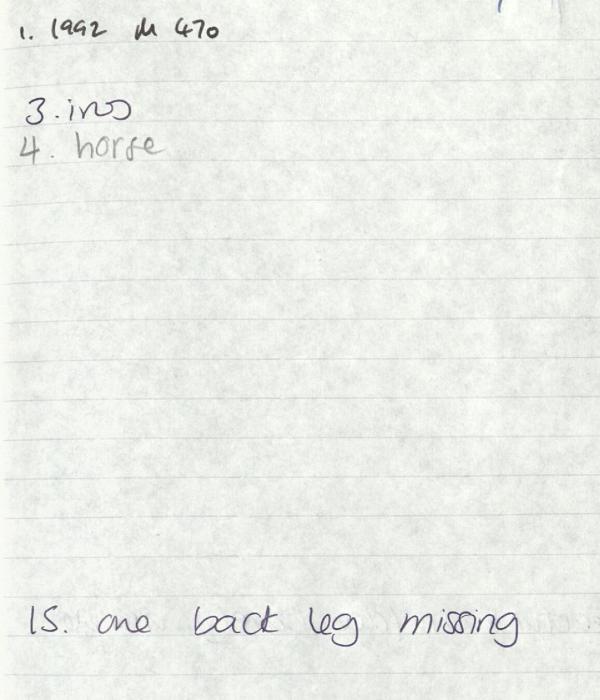 1. 1992 M 470
3. ino
4. horse
15. one back leg missing